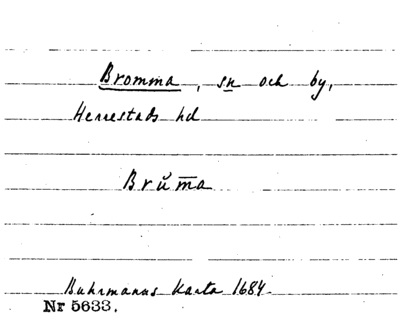 Bromma, sn och by,
Herrestads hd
Brŭm̅a
Buhrmanns Karta 1684.
Nr 5633.